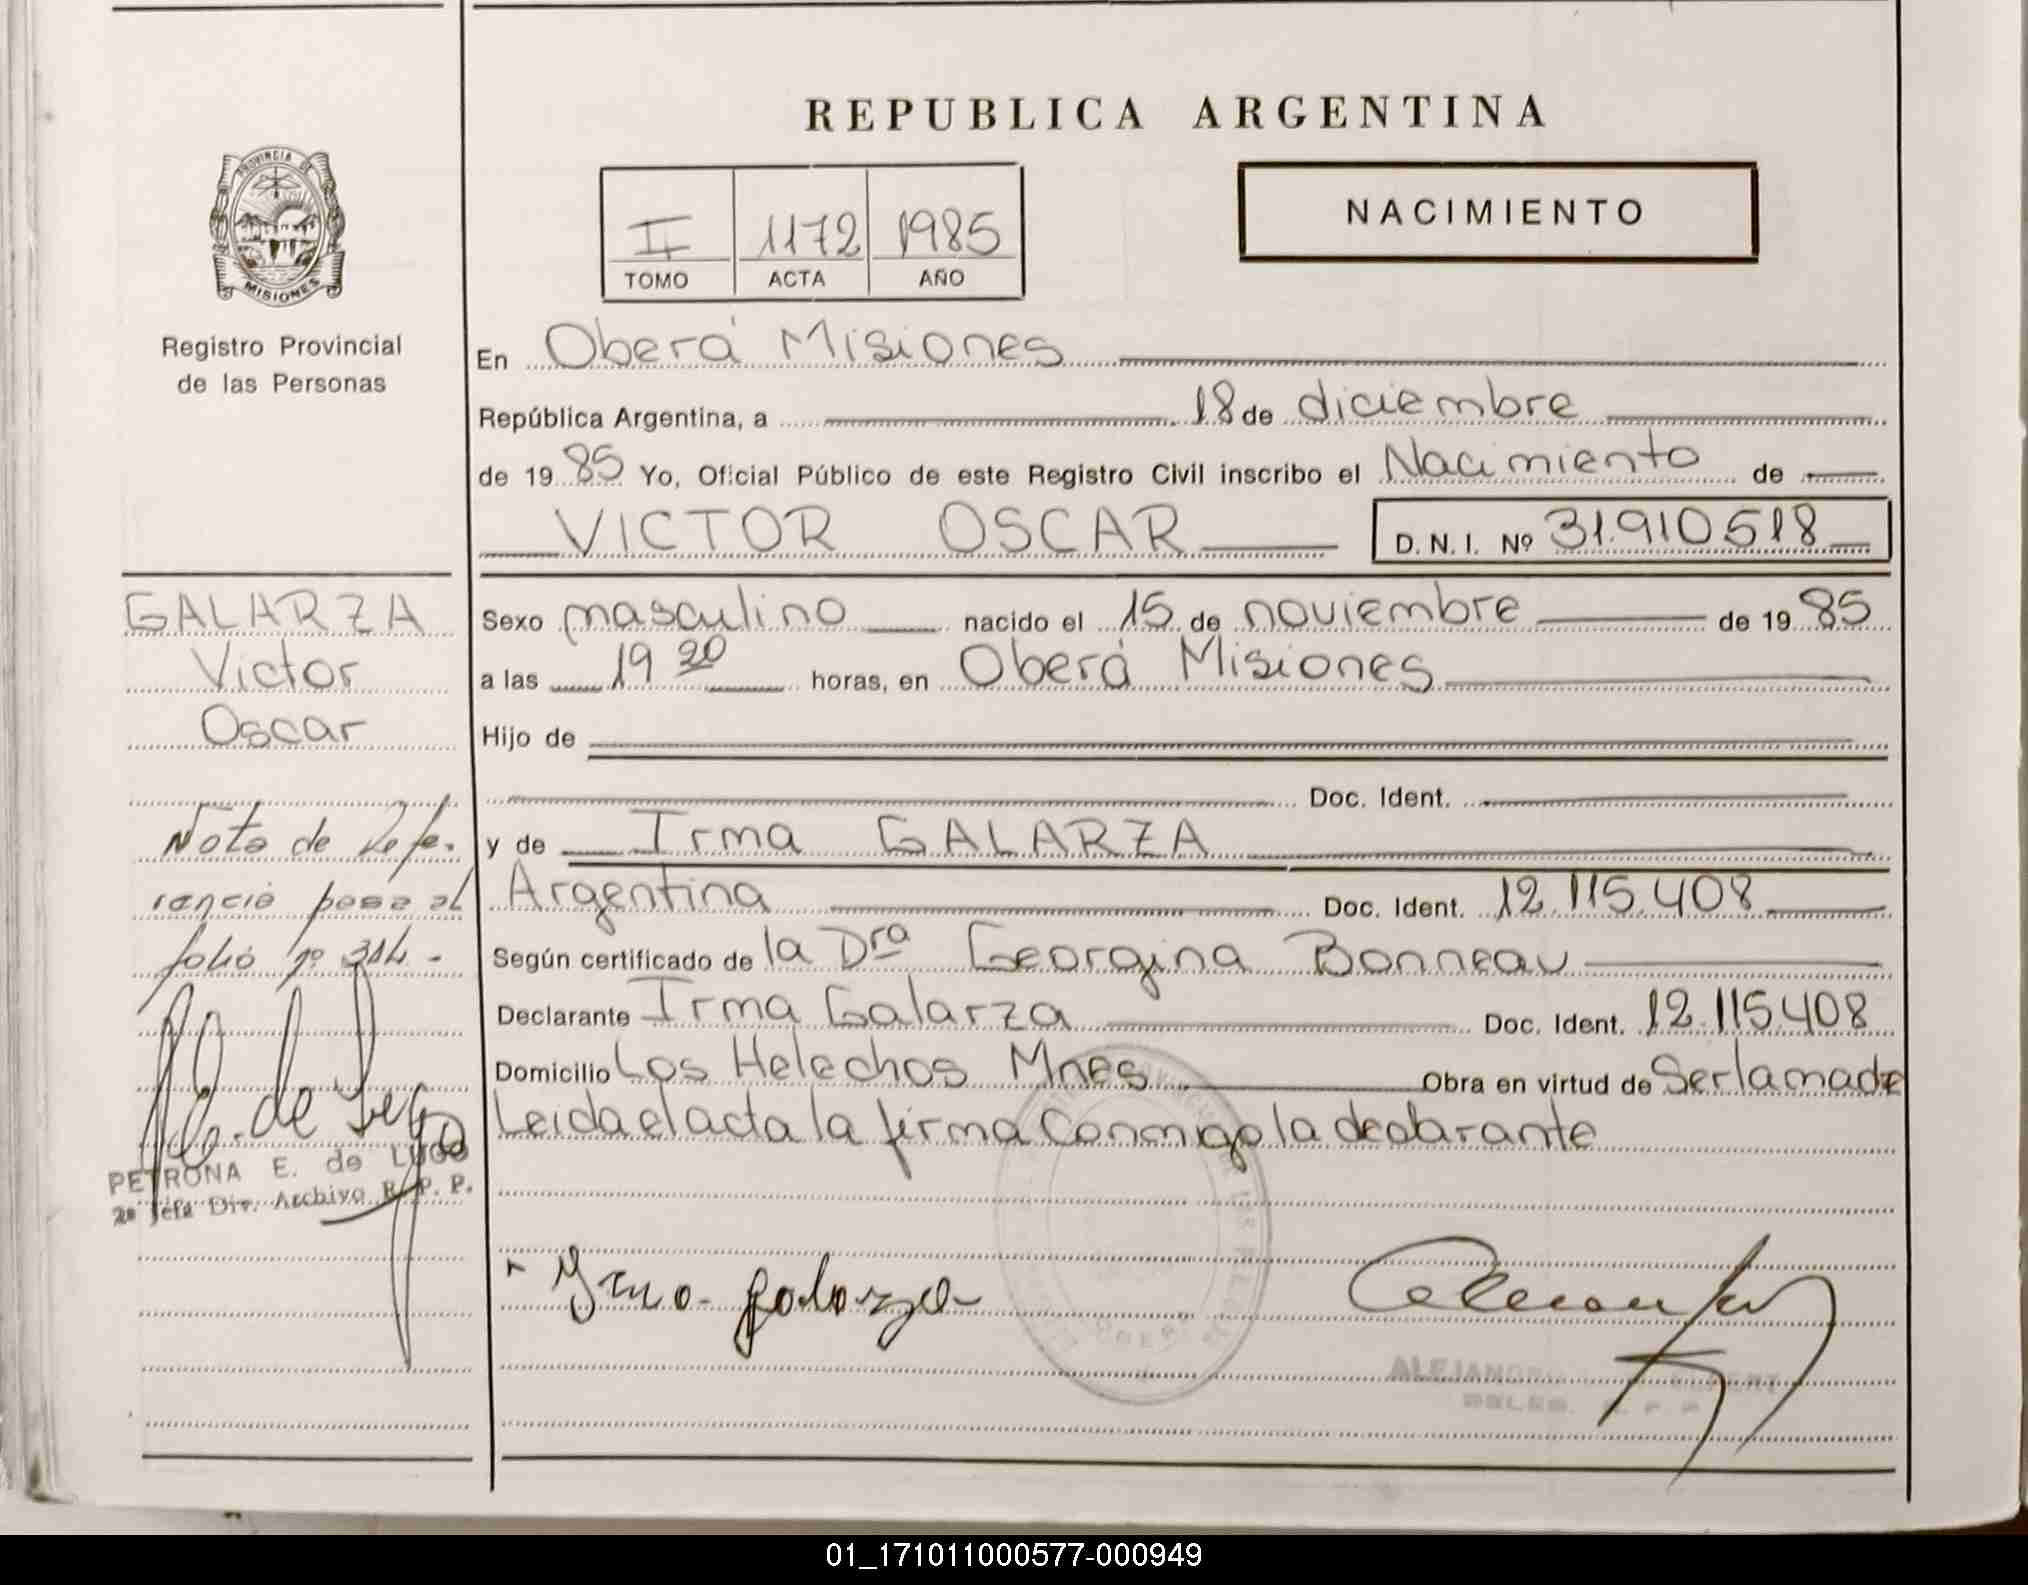 REPUBLICA ARGENTINA
PROVINCIA DE
MISIONES
Registro Provincial
de las Personas
II 1172 1985
TOMO ACTA AÑO
NACIMIENTO
En Oberá Misiones
República Argentina, a 18 de diciembre
de 19 85 Yo, Oficial Público de este Registro Civil inscribo el Nacimiento de
VICTOR OSCAR D. N. I. Nº 31.910.518
GALARZA
Victor
Oscar
Sexo masculino nacido el 15 de noviembre de 19 85
a las 19 20 horas, en Oberá Misiones
Hijo de
Doc. Ident.
y de Irma GALARZA
Argentina Doc. Ident. 12.115.408
Según certificado de la Dra Georgina Bonneau
Declarante Irma Galarza Doc. Ident. 12.115.408
Domicilio Los Helechos Mnes Obra en virtud de Ser la madre
Leida el acta la firma Conmigo la declarante
Nota de Refe-
rencia pasa al
folio nº 314.-
PETRONA E. de LUGO
2º Jefa Div. Archivo R. P. P.
Irma galarza
ALEJANDRO
01_171011000577-000949